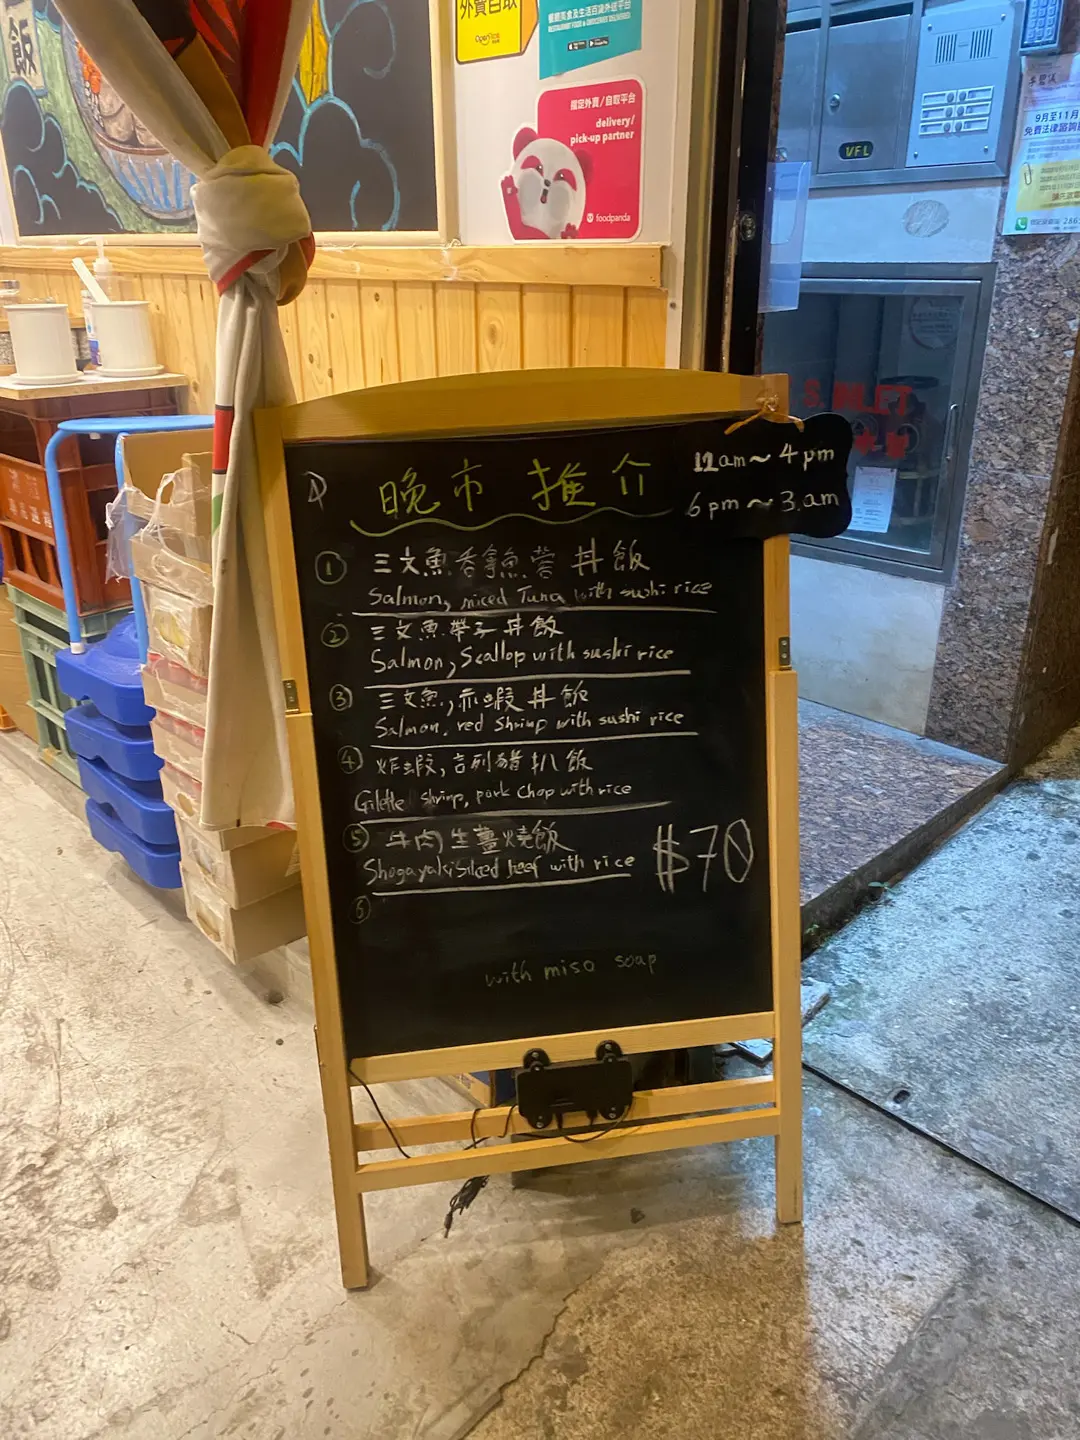 飯
外賣自取
OpenRice
餐廳美食及生活百貨外送平台
指定外賣/自取平台
delivery/
pick-up partner
foodpanda
V.F.L
9月至11月
晚市推介
12am~4pm
6pm~3.am
① 三文魚吞拿魚蓉丼飯
Salmon, miced Tuna with sushi rice
② 三文魚帶子丼飯
Salmon, Scallop with sushi rice
③ 三文魚,赤蝦丼飯
Salmon, red Shrimp with sushi rice
④ 炸蝦,吉列豬扒飯
shrimp, pork chop with rice
⑤ 牛肉生薑燒飯
Shogayaki Silced beef with rice
$70
⑥
with miso soap